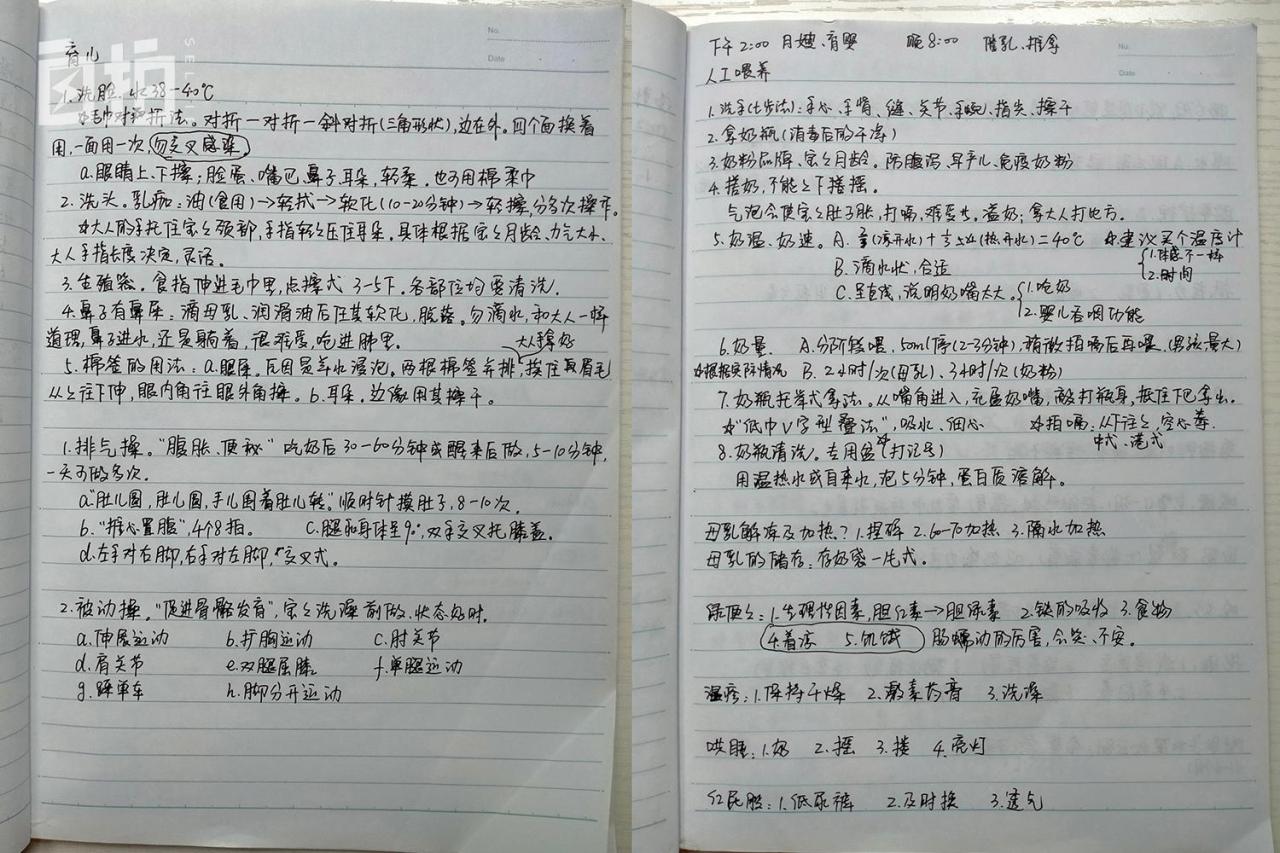 育儿
1.洗脸.水38-40℃
毛巾对折法。对折一对折一斜对折(三角形状),边在外。四个面换着
用,一面用一次,勿交叉感染
a.眼睛上、下擦;脸蛋、嘴巴、鼻子、耳朵,轻柔。也可用棉柔巾
2.洗头。乳痂:油(食用)→轻拭→软化(10-20分钟)→轻擦,分多次擦干。
☆大人的手托住宝宝颈部,手指轻轻压住耳朵。具体根据宝宝月龄、力气大小、
大人手指长度决定,灵活。
3.生殖器。食指伸进毛巾里,点擦式 3-5下。各部位均要清洗.
4.鼻子有鼻屎:滴母乳、润滑油后任其软化,脱落。勿滴水,和大人一样
道理,鼻子进水,还是躺着,很难受,呛进肺里。
大人拿好
5.棉签的用法:a.眼屎。瓦因是羊水浸泡。两根棉签并排,挨住眉毛
从上往下伸,眼内角往眼外角擦。b.耳朵.边缘用其擦干。
1.排气操。"腹胀、便秘" 吃奶后30-60分钟或醒来后做,5-10分钟,
一天可做多次.
a."肚儿圆,肚儿圆,手儿围着肚儿转"。顺时针摸肚子,8-10次
b."推心置腹",4个8拍。 c.腿和身体呈90°,双手交叉托膝盖。
d.左手对右脚,右手对左脚,"交叉式。
2.被动操。"促进骨骼发育",宝宝洗澡前做.状态好时.
a.伸展运动 b.扩胸运动 c.肘关节
d.肩关节 e.双腿屈膝. f.单腿运动
g.踩单车 h.脚分开运动
No.
Date
下午2:00 月嫂、育婴 晚8:00 催乳、推拿
人工喂养
1.洗手(七步法):手心、手背、缝、关节、手腕、指尖、擦干
2.拿奶瓶(消毒后的干净)
3.奶粉品牌、宝宝月龄。防腹泻、早产儿、免疫奶粉
4.搓奶,不能上下摇摇。
气泡会使宝宝肚子胀,打嗝,难受哭。溢奶:拿大人打比方.
5.奶温、奶速。A.(凉开水)+(热开水)=40℃ ☆建议买个温度计
1.体感不一样
2.时间
B.滴水状,合适
C.呈直线,说明奶嘴太大。1.呛奶
2.婴儿吞咽功能
6.奶量. A.分阶段喂,50ml停(2-3分钟),稍微拍嗝后再喂.(男孩量大)
☆根据实际情况 B.2小时/次(母乳)、3小时/次(奶粉)
7.奶瓶托举式拿法。从嘴角进入,充盈奶嘴,敲打瓶身,抵住下巴拿出.
☆"纸巾V字型叠法",吸水、细心 ☆拍嗝:从下往上,空心拳.
中式、港式
8.奶瓶清洗。专用盆☆(打记号)
用温热水或自来水,泡5分钟,蛋白质溶解。
母乳解冻及加热?1.捏碎 2.60-70加热 3.隔水加热
母乳的储存:存奶袋一片式。
绿便便:1.生理性因素,胆红素→胆绿素 2.铁的吸收 3.食物
4.着凉 5.饥饿 肠蠕动的厉害,会哭、不安。
湿疹:1.保持干燥 2.激素药膏 3.洗澡
哄睡:1.奶 2.摇 3.搂 4.亮灯
红屁股:1.纸尿裤 2.及时换 3.透气
No.
Date